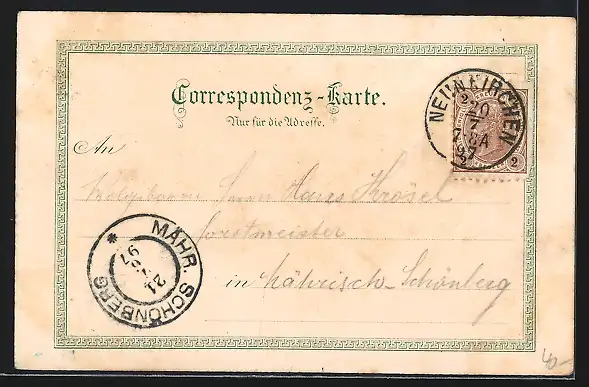 Correspondenz-Karte.
Nur für die Adresse.
NEUNKIRCHEN
20
7
97
2
2
An
Herrn Hans Krösel
Forstmeister
in Mährisch-Schönberg
MÄHR. SCHÖNBERG
21
7
97
40-